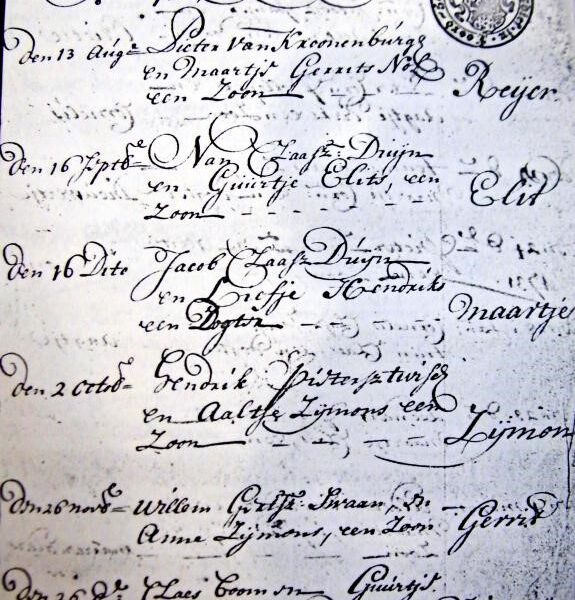 Den 13 Aug:e Pieter Van Kroonenburg
en Maartje Gerrits Nol
een Zoon Reijer
Den 16 Septb:e Nan Claasz: Duijn
en Guurtje Elits, een
Zoon Elit
Den 16 Dito Jacob Claasz Duijn
en Liefje Hendriks
een Dogter Maartje
Den 2 Octob:e Hendrik Pietersz twisk
en Aaltje Zijmons een
Zoon Zijmon
Den 26 Novb:e Willem Swaan, en
Anne Zijmons, een Zoon Gerrit
Den 26 Claes Guurtje